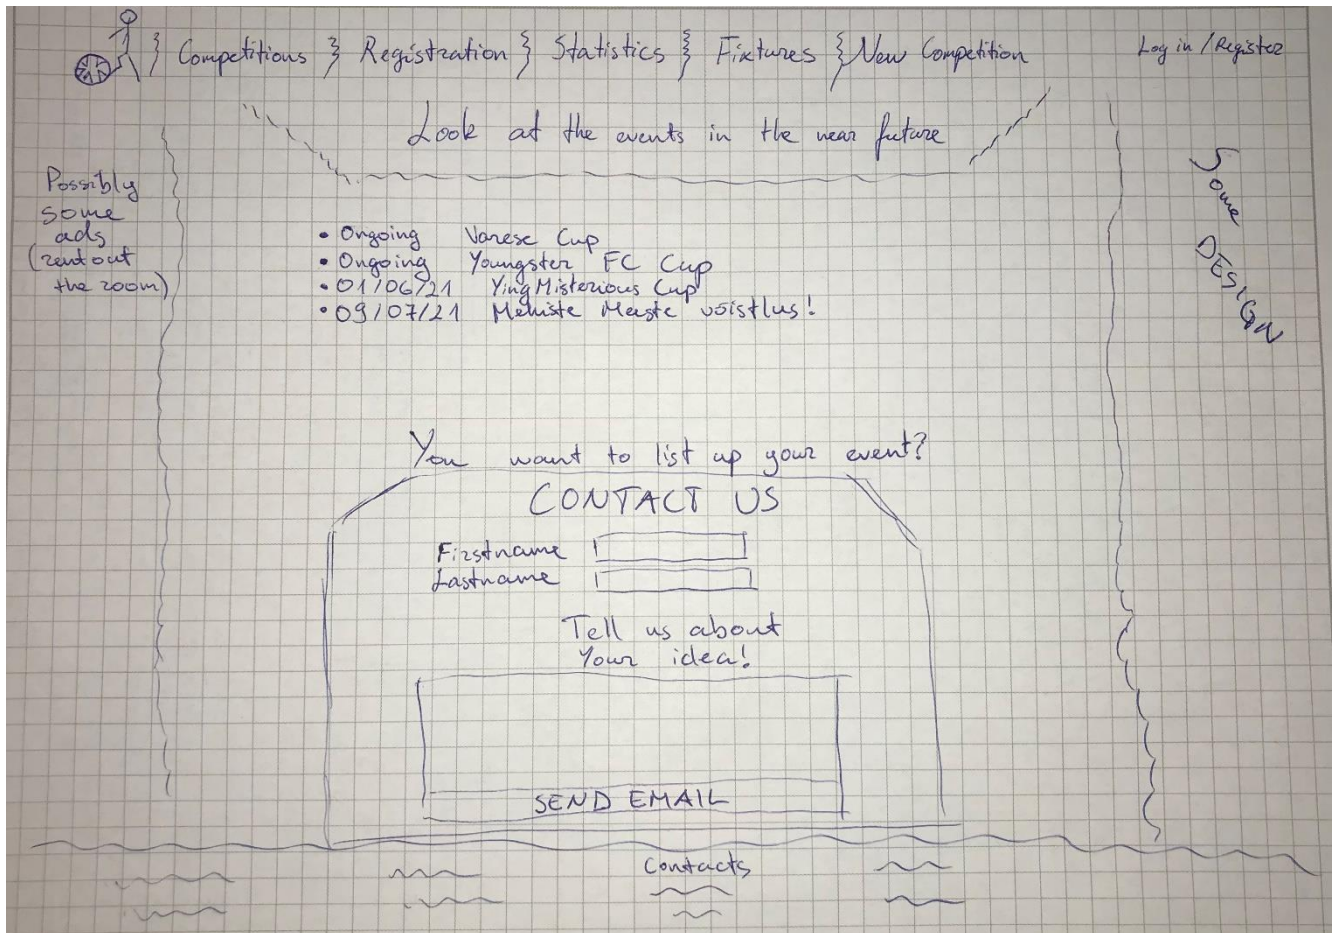 Competitions Registration Statistics Fixtures New Competition Log in / Register
Look at the events in the near future
Possibly
some
ads
(rent out
the room)
Some DESIGN
• Ongoing Varese Cup
• Ongoing Youngster FC Cup
• 01/06/21 Ying Misterious Cup
• 09/07/21 Mehiste Meiste võistlus!
You want to list up your event?
CONTACT US
Firstname
Lastname
Tell us about
Your idea!
SEND EMAIL
Contacts